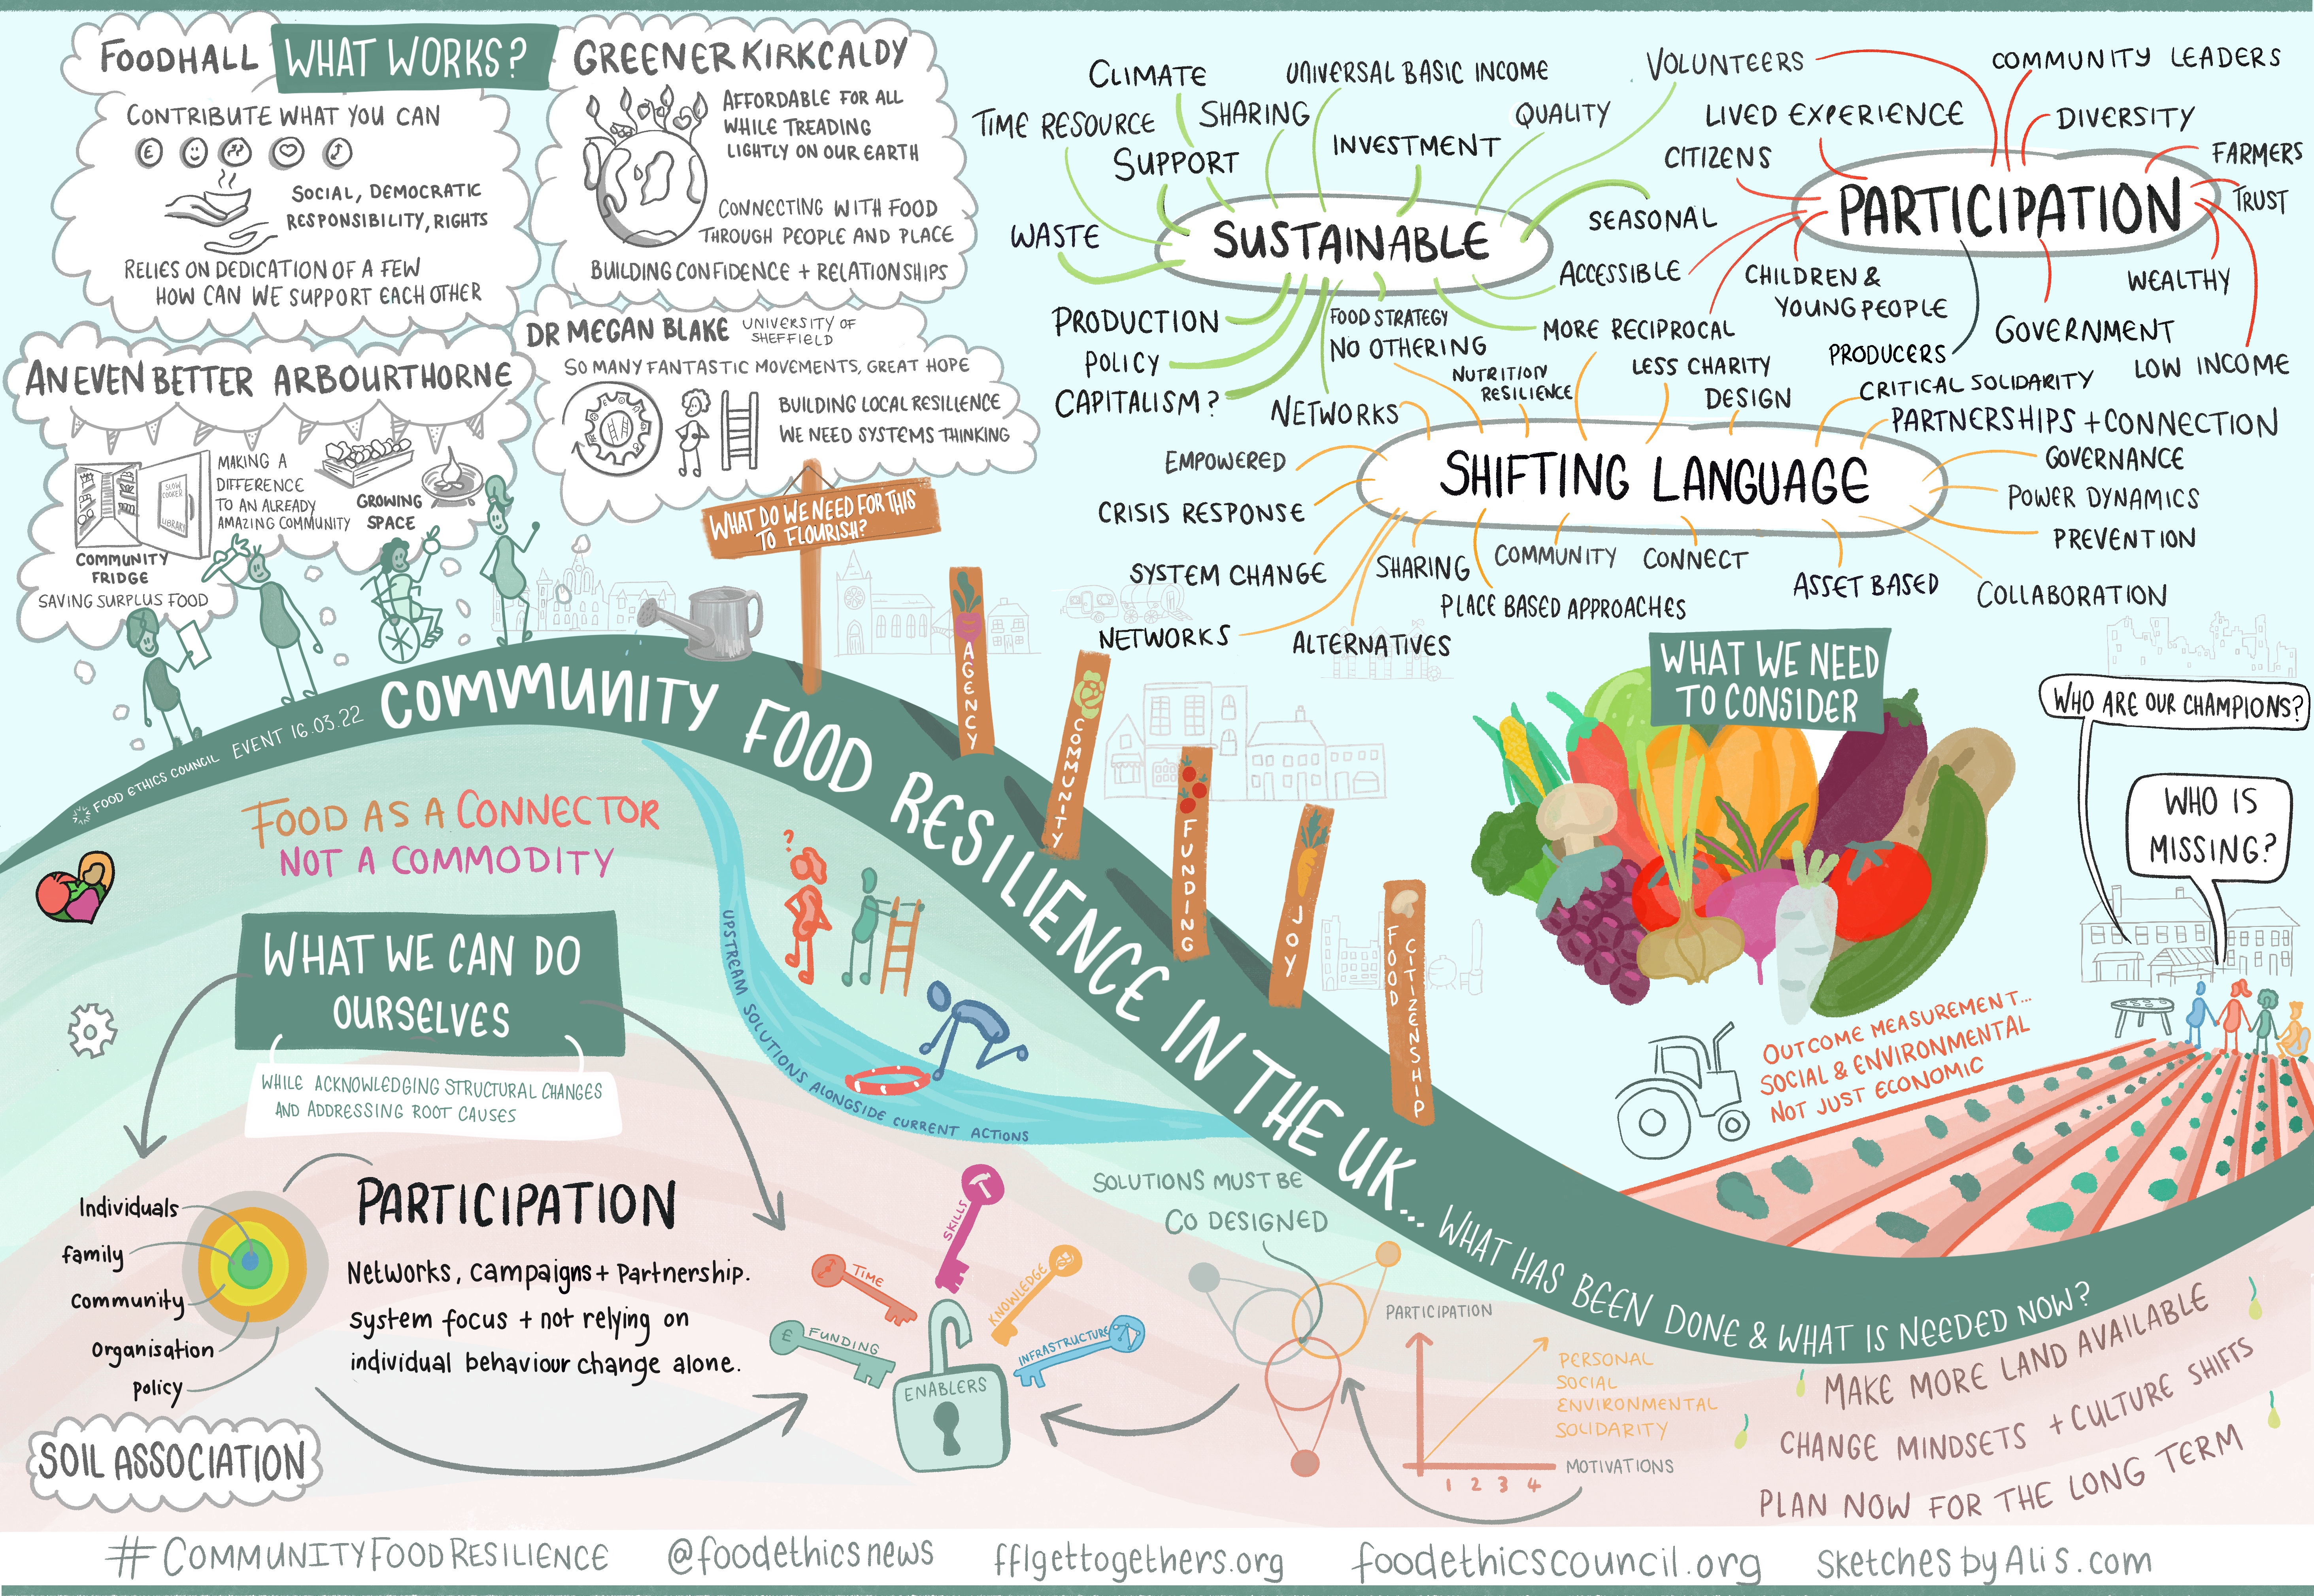 FOODHALL
WHAT WORKS?
CONTRIBUTE WHAT YOU CAN
£
SOCIAL, DEMOCRATIC
RESPONSIBILITY, RIGHTS
RELIES ON DEDICATION OF A FEW
HOW CAN WE SUPPORT EACH OTHER
GREENER KIRKCALDY
AFFORDABLE FOR ALL
WHILE TREADING
LIGHTLY ON OUR EARTH
CONNECTING WITH FOOD
THROUGH PEOPLE AND PLACE
BUILDING CONFIDENCE + RELATIONSHIPS
AN EVEN BETTER ARBOURTHORNE
SLOW
COOKER
LIBRARY
MAKING A
DIFFERENCE
TO AN ALREADY
AMAZING COMMUNITY
GROWING
SPACE
COMMUNITY
FRIDGE
SAVING SURPLUS FOOD
DR MEGAN BLAKE UNIVERSITY OF
SHEFFIELD
SO MANY FANTASTIC MOVEMENTS, GREAT HOPE
BUILDING LOCAL RESILIENCE
WE NEED SYSTEMS THINKING
WHAT DO WE NEED FOR THIS
TO FLOURISH?
AGENCY
COMMUNITY
FUNDING
JOY
FOOD
CITIZENSHIP
SUSTAINABLE
CLIMATE
UNIVERSAL BASIC INCOME
TIME RESOURCE
SHARING
SUPPORT
INVESTMENT
QUALITY
VOLUNTEERS
WASTE
SEASONAL
ACCESSIBLE
PRODUCTION
POLICY
CAPITALISM?
FOOD STRATEGY
NO OTHERING
MORE RECIPROCAL
NETWORKS
PARTICIPATION
COMMUNITY LEADERS
LIVED EXPERIENCE
DIVERSITY
CITIZENS
FARMERS
TRUST
CHILDREN &
YOUNG PEOPLE
WEALTHY
GOVERNMENT
PRODUCERS
LOW INCOME
SHIFTING LANGUAGE
NUTRITION
RESILIENCE
LESS CHARITY
DESIGN
CRITICAL SOLIDARITY
PARTNERSHIPS + CONNECTION
GOVERNANCE
POWER DYNAMICS
PREVENTION
EMPOWERED
CRISIS RESPONSE
SYSTEM CHANGE
SHARING
COMMUNITY
CONNECT
ASSET BASED
COLLABORATION
PLACE BASED APPROACHES
NETWORKS
ALTERNATIVES
WHAT WE NEED
TO CONSIDER
WHO ARE OUR CHAMPIONS?
WHO IS
MISSING?
OUTCOME MEASUREMENT...
SOCIAL & ENVIRONMENTAL
NOT JUST ECONOMIC
FOOD ETHICS COUNCIL EVENT 16.03.22
COMMUNITY FOOD RESILIENCE IN THE UK... WHAT HAS BEEN DONE & WHAT IS NEEDED NOW?
FOOD AS A CONNECTOR
NOT A COMMODITY
WHAT WE CAN DO
OURSELVES
WHILE ACKNOWLEDGING STRUCTURAL CHANGES
AND ADDRESSING ROOT CAUSES
?
UPSTREAM SOLUTIONS ALONGSIDE CURRENT ACTIONS
Individuals
family
Community
Organisation
policy
PARTICIPATION
Networks, campaigns + Partnership.
system focus + not relying on
individual behaviour change alone.
SOIL ASSOCIATION
SKILLS
TIME
KNOWLEDGE
£ FUNDING
INFRASTRUCTURE
ENABLERS
SOLUTIONS MUST BE
CO DESIGNED
PARTICIPATION
PERSONAL
SOCIAL
ENVIRONMENTAL
SOLIDARITY
MOTIVATIONS
1 2 3 4
MAKE MORE LAND AVAILABLE
CHANGE MINDSETS + CULTURE SHIFTS
PLAN NOW FOR THE LONG TERM
#COMMUNITYFOODRESILIENCE @foodethicsnews fflgettogethers.org foodethicscouncil.org SketchesbyAlis.com